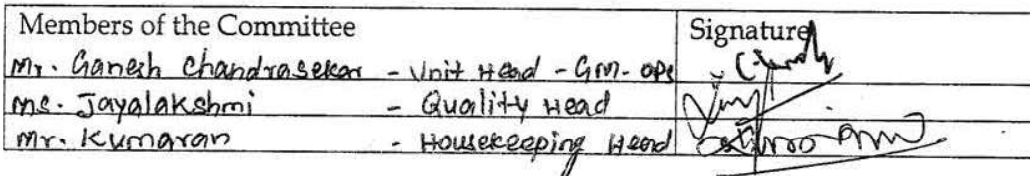 Members of the Committee Signature
Mr. Ganesh Chandrasekar - Unit Head - GM-ops
Ms. Jayalakshmi - Quality Head
Mr. Kumaran - Housekeeping Head